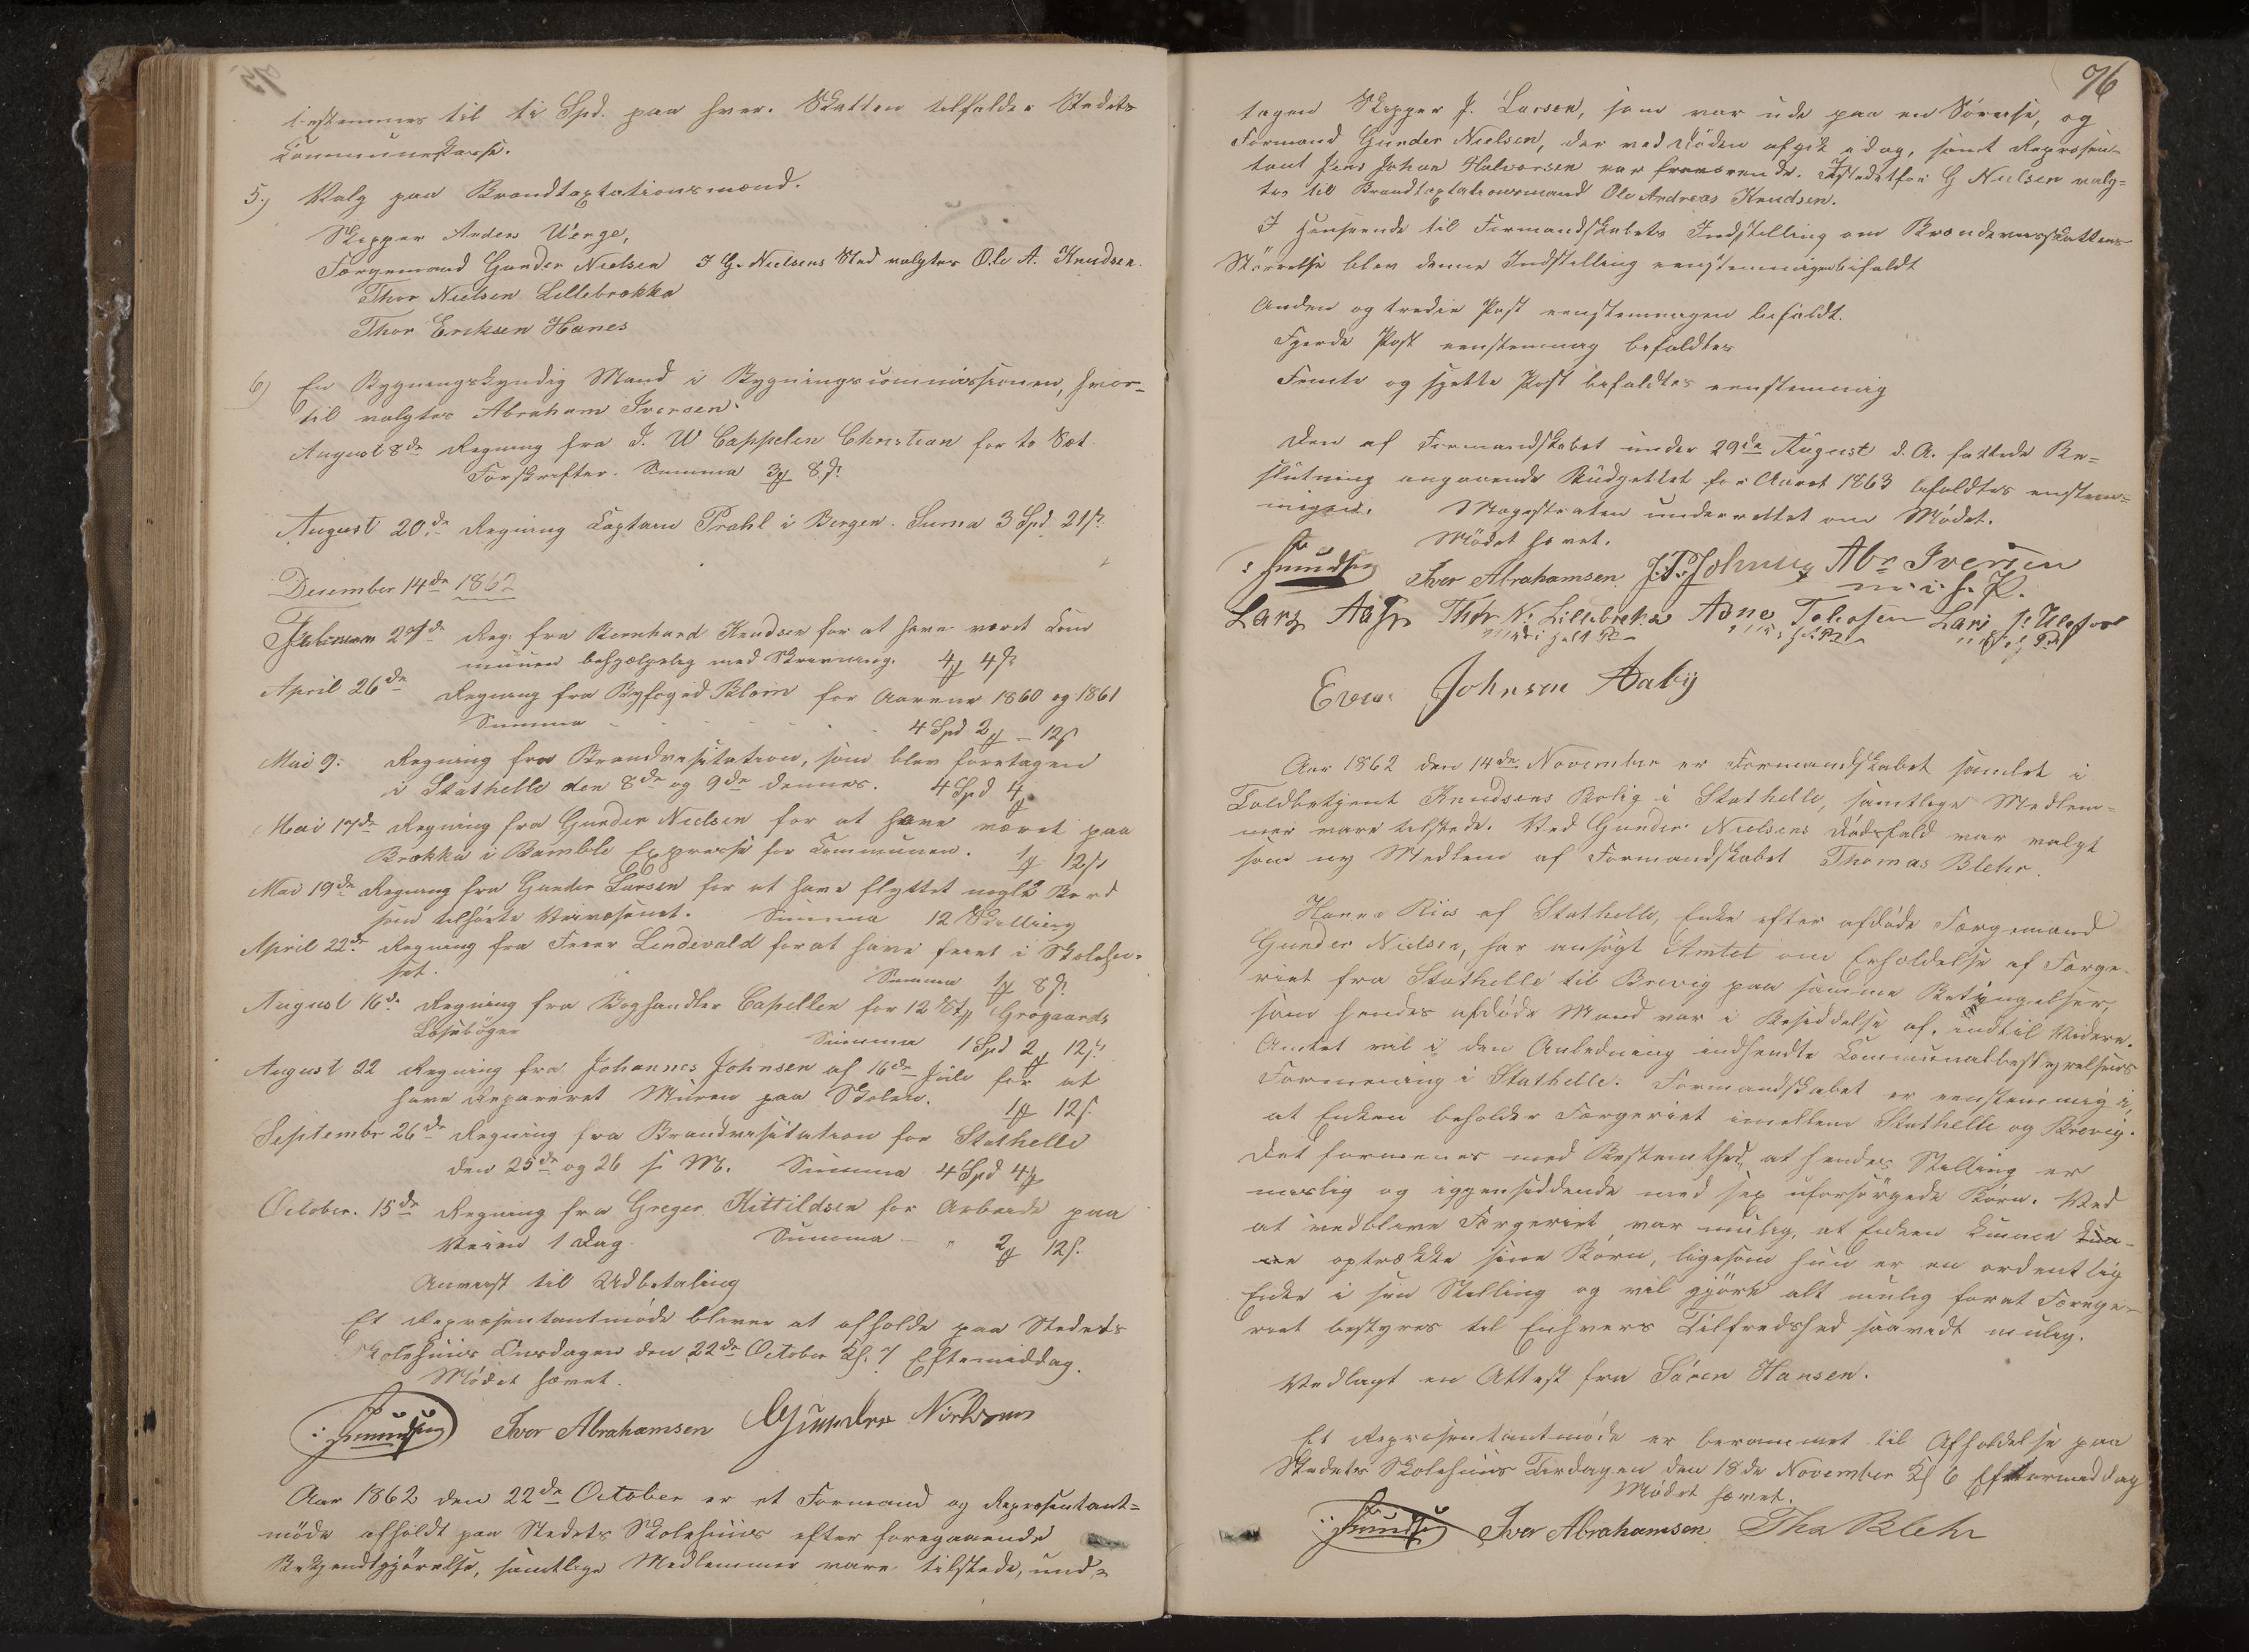 bestemmes til ti Spd. paa hver. Skatten tilfalder Stedets
Communekasse.
5.) Valg paa Brandtaxtationsmænd.
Skipper Anders Wenge,
Færgemand Gunder Nielsen I G. Nielsens Sted valgtes Ole A. Knudsen.
Thor Nielsen Lillebrækka
Thor Eriksen Hanes
6) En Bygningskyndig Mand i Bygningscommissionen, hvor-
til valgtes Abraham Iversen.
August 8de Regning fra J. W Cappelen Christian for to Sæt
Forskrifter. Summa 3 8 s.
August 20de Regning Captain Prahl i Bergen. Suma 3 Spd 21 s.
December 14de 1862
Februar 27de Reg: fra Bernhard Knudsen for at have været Com
munen behjælpelig med Skrivning. 4 4 s.
April 26de Regning fra Byfoged Blom for Aarene 1860 og 1861
Summa 4 Spd 2 - 12 s
Mai 9. Regning fra Brandvisitation, som blev foretagen
i Stathelle den 8de og 9de dennes. 4 Spd 4
Mai 17de Regning fra Gunder Nielsen for at have været paa
Brækka i Bamble Expresse for Communen. 1 12 s
Mai 19de Regning fra Gunder Larsen for at have flyttet nogle Bord
som tilhørte Veivæsenet. Summa 12 Skilling
April 22de Regning fra Feier Lindevald forat have feiet i Skolehu-
set. Summa 1 8 s.
August 16de Regning fra Boghandler Capellen for 12 Grøgaards
Læsebøger Summa 1 Spd 2 12 s.
August 22 Regning fra Johannes Johnsen af 16de Juli for at
have Repareret Muren paa Skolen. 1 12 s.
September 26de Regning fra Brandvisitation for Stathelle
den 25de og 26 s. M. Summa 4 Spd 4
October. 15de Regning fra Greger Kittildsen for Arbeide paa
Veien 1 Dag. Summa - " 2 12 s.
Anvist til Udbetaling
Et Repræsentantmøde bliver at afholde paa Stedets
Skolehuus Onsdagen den 22de October Kl. 7 Eftemiddag.
Mødet hævet.
Knudsen Iver Abrahamsen Gunder Nielsen
Aar 1862 den 22de October er et Formand og Repræsentant=
møde afholdt paa Stedets Skolehuus efter foregaaende
Bekjendtgjørelse, samtlige Medlemmer vare tilstede, und=
76
tagen Skipper J. Larsen, som var ude paa en Søreise, og
Formand Gunder Nielsen, der ved Døden afgik idag, samt Repræsen-
tant Jens Johan Halvorsen var fraværende. Istedetfor G Nielsen valg=
tes til Brandtaxtationsmand Ole Andreas Knudsen.
I Henseende til Formandskabets Indstilling om Brændeviinsskattens
Størrelse blev denne Indstilling eenstemmigen bifaldt
Anden og tredie Post eenstemmigen bifaldt.
Fjerde Post eenstemmig bifaldtes
Femte og sjette Post bifaldtes eenstemmig
Den af Formandskabet under 29de August d. A. fattede Be=
slutning angaaende Budgettet for Aaret 1863 bifaldtes enstem=
migen. Magistraten underrettet om Mødet.
Mødet hævet.
Knudsen Iver Abrahamsen Abr Iversen
m. i. h. P.
Lars Aase Thor N. Lillebrekka Lars
med i holdt P
Even Johnsen Aaby
Aar 1862 den 14de November er Formandskabet samlet i
Toldbetjent Knudsens Bolig i Stathelle, samtlige Medlem=
mer vare tilstede. Ved Gunder Nielsens Dødsfald var valgt
som ny Medlem af Formandskabet Thomas Blehr.
Hanna Riis af Stathelle, Enke efter afdøde Færgemand
Gunder Nielsen, har ansøgt Amtet om Erholdelse af Færge-
riet fra Stathelle til Brevig paa samme Betingelser,
som hendes afdøde Mand var i Besiddelse af, indtil Videre.
Amtet vil i den Anledning indhendte Communalbestyrelsens
Formening i Stathelle. Formandskabet er eenstemmig i,
at Enken beholder Færgeriet imellem Stathelle og Brevig.
Det formenes med Bestemthed, at hendes Stilling er
maslig og igjensiddende med sex uforsørgede Børn. Ved
at vedblive Færgeriet, var mulig, at Enken kunne kun-
ne optrække sine Børn, ligesom hun er en ordentlig
Enke i sin Stilling og vil gjøre alt mulig forat Færge-
riet bestyres til Enhvers Tilfredshed saavidt mulig.
Vedlagt en Attest fra Søren Hansen.
Et Repræsentantmøde er berammet til Afholdelse paa
Stedets Skolehuus Tirdagen den 18de November Kl 6 Eftermiddag
Mødet hævet.
Knudsen Iver Abrahamsen Tho Blehr